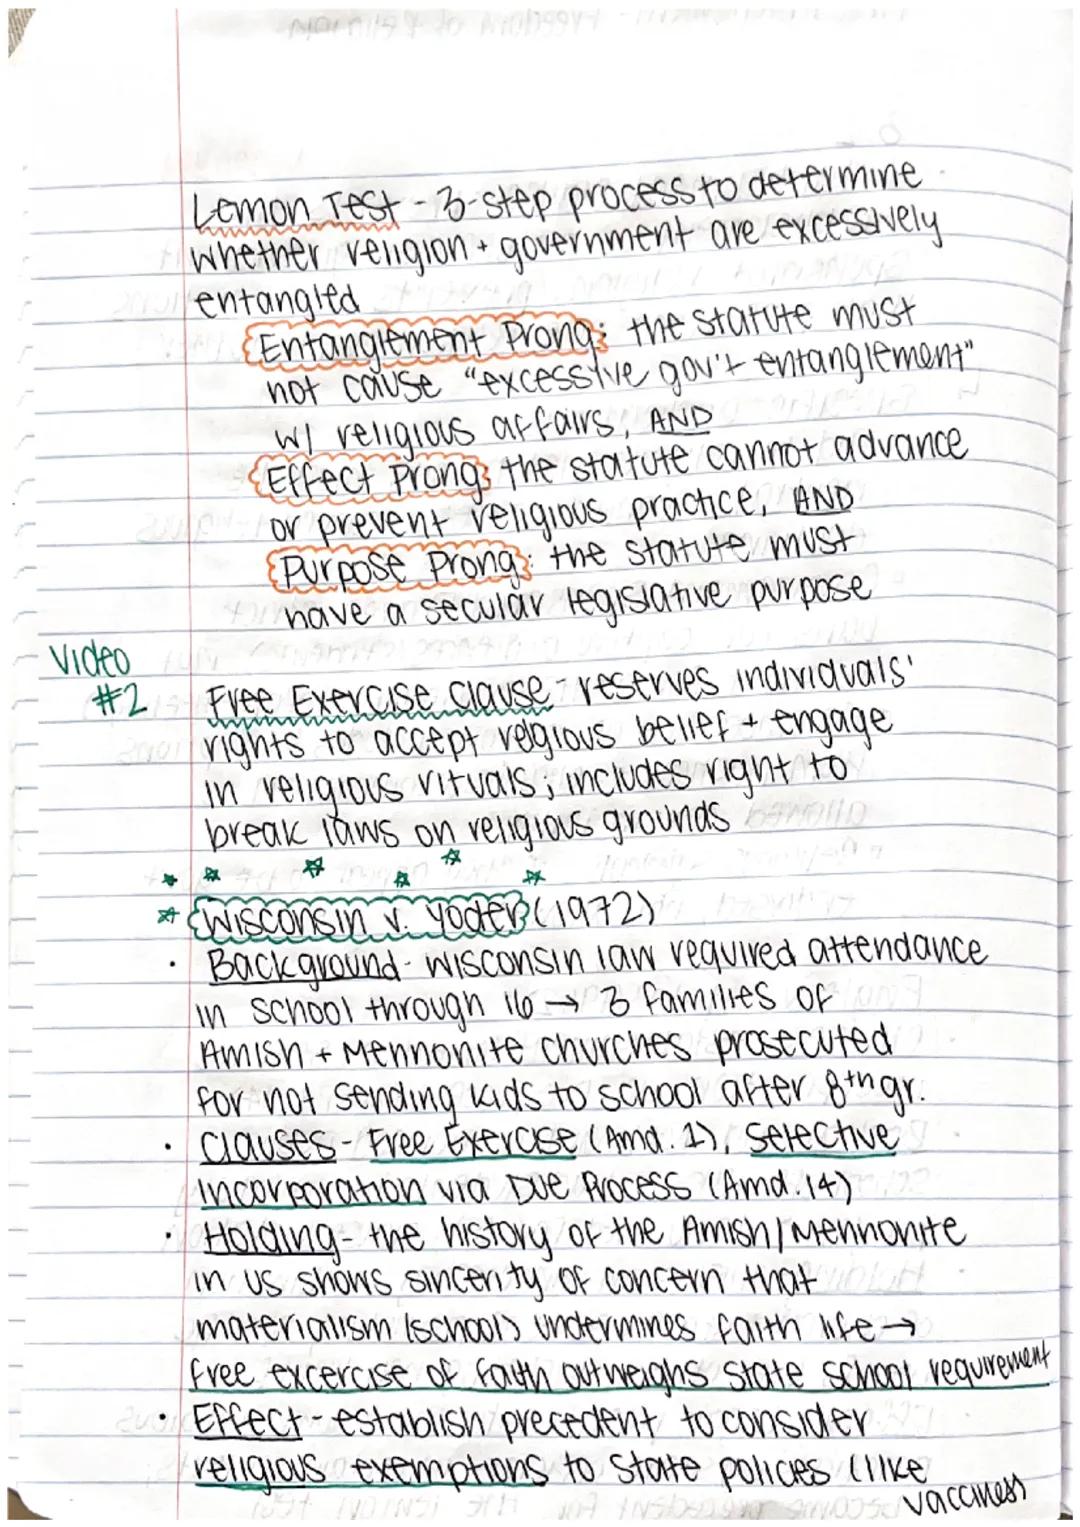 Lemon Test - 3-step process to determine
whether religion + government are excessively
entangled
Entanglement Prong: the statute must
not cause "excessive gov't entanglement"
w/ religious affairs, AND
Effect Prong: the statute cannot advance
or prevent religious practice, AND
Purpose Prong: the statute must
have a secular legislative purpose
Video
#2
Free Exercise Clause - reserves individuals'
rights to accept relgious belief + engage
in religious rituals; includes right to
break laws on religious grounds
Wisconsin v. Yoder (1972)
· Background - Wisconsin law required attendance
in school through 16 → 3 families of
Amish + Mennonite churches prosecuted
for not sending kids to school after 8th gr.
· Clauses - Free Exercise (Amd. 1), Selective
Incorporation via Due Process (Amd. 14)
· Holding - the history of the Amish/Mennonite
in US shows sincerity of concern that
materialism (school) undermines faith life →
free excercise of faith outweighs state school requirement
· Effect - establish precedent to consider
religious exemptions to state policies (like
vaccines)